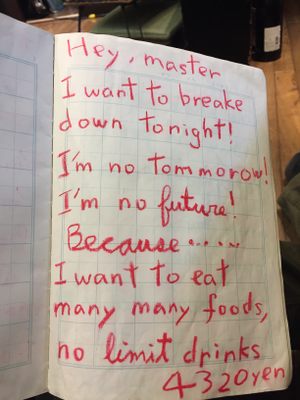 Hey, master
I want to breake
down tonight!
I'm no tommorow!
I'm no future!
Because.....
I want to eat
many many foods,
no limit drinks
4320yen